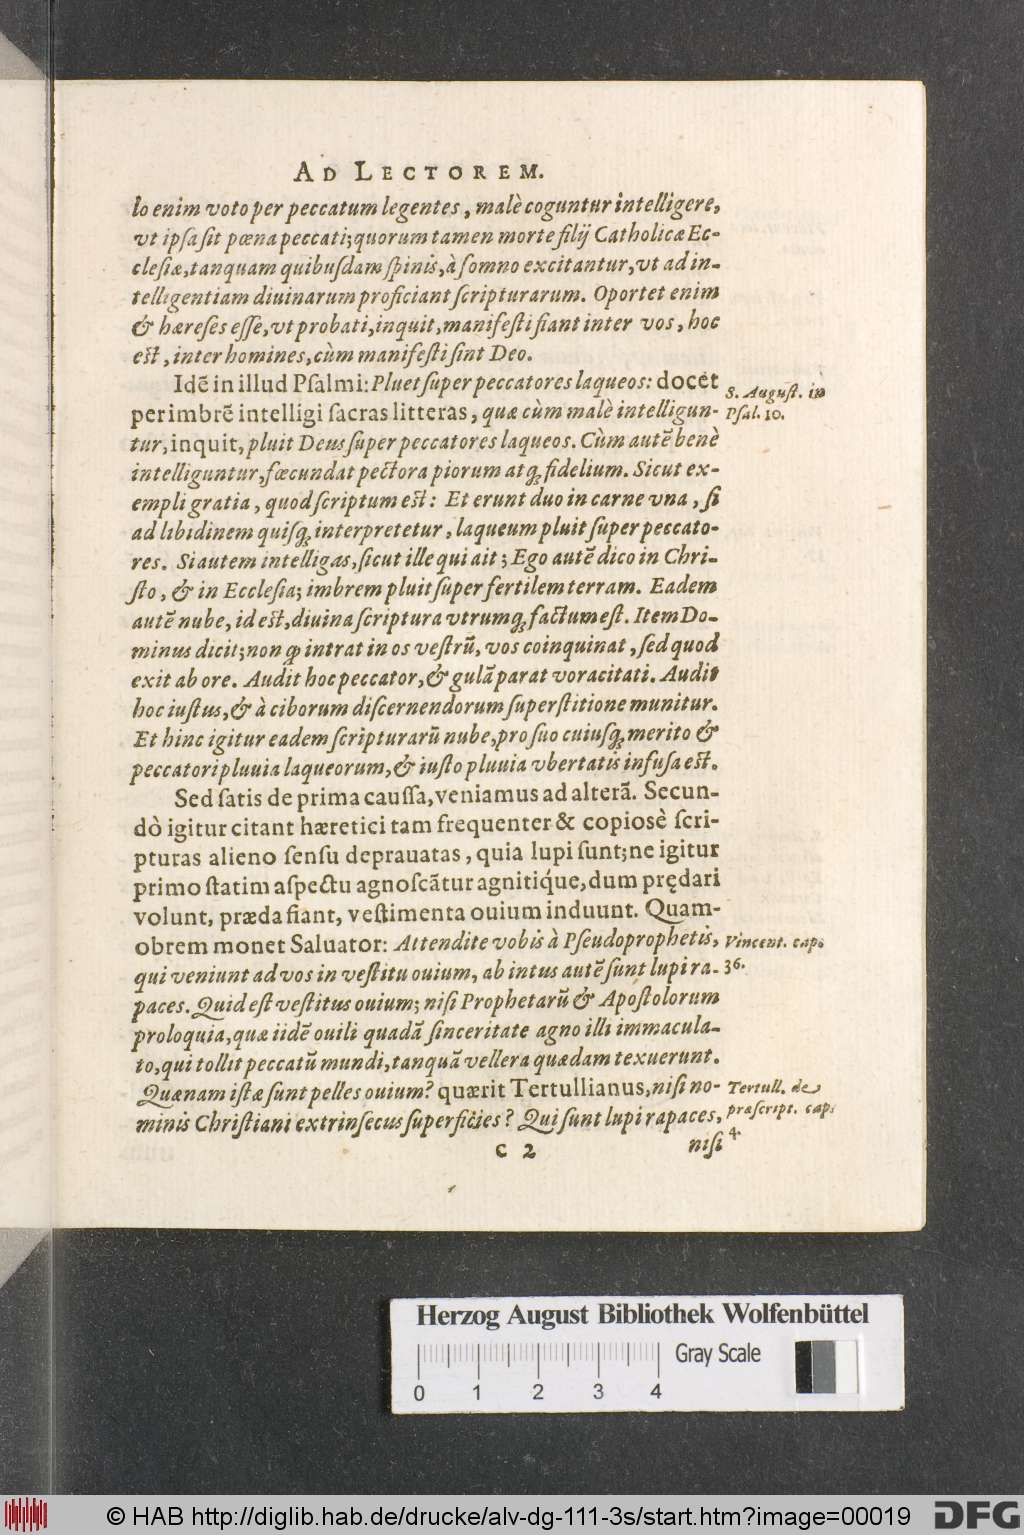 AD LECTOREM.
lo enim voto per peccatum legentes, malè coguntur intelligere,
vt ipsa sit pœna peccati; quorum tamen morte filij Catholicæ Ec-
clesiæ, tanquam quibusdam spinis, à somno excitantur, vt ad in-
telligentiam diuinarum proficiant scripturarum. Oportet enim
& hæreses esse, vt probati, inquit, manifesti fiant inter vos, hoc
est, inter homines, cùm manifesti sint Deo.
Idē in illud Psalmi: Pluet super peccatores laqueos: docet
per imbrē intelligi sacras litteras, quæ cùm malè intelligun-
tur, inquit, pluit Deus super peccatores laqueos. Cùm autē benè
intelliguntur, fœcundat pectora piorum atq; fidelium. Sicut ex-
empli gratia, quod scriptum est: Et erunt duo in carne vna, si
ad libidinem quisq; interpretetur, laqueum pluit super peccato-
res. Si autem intelligas, sicut ille qui ait; Ego autē dico in Chri-
sto, & in Ecclesia; imbrem pluit super fertilem terram. Eadem
autē nube, id est, diuina scriptura vtrumq; factum est. Item Do-
minus dicit; non ꝙ intrat in os vestrū, vos coinquinat, sed quod
exit ab ore. Audit hoc peccator, & gulā parat voracitati. Audit
hoc iustus, & à ciborum discernendorum superstitione munitur.
Et hinc igitur eadem scripturarū nube, pro suo cuiusq; merito &
peccatori pluuia laqueorum, & iusto pluuia vbertatis infusa est.
Sed satis de prima caussa, veniamus ad alterā. Secun-
dò igitur citant hæretici tam frequenter & copiosè scri-
pturas alieno sensu deprauatas, quia lupi sunt; ne igitur
primo statim aspectu agnoscātur agnitiq́ue, dum prędari
volunt, præda fiant, vestimenta ouium induunt. Quam-
obrem monet Saluator: Attendite vobis à Pseudoprophetis,
qui veniunt ad vos in vestitu ouium, ab intus autē sunt lupi ra-
paces. Quid est vestitus ouium; nisi Prophetarū & Apostolorum
proloquia, quæ iidē ouili quadā sinceritate agno illi immacula-
to, qui tollit peccatū mundi, tanquā vellera quædam texuerunt.
Quænam istæ sunt pelles ouium? quærit Tertullianus, nisi no-
minis Christiani extrinsecus superficies? Qui sunt lupi rapaces,
C 2 nisi
S. August. in
Psal. 10.
Vincent. cap.
36.
Tertull. de
præscript. cap.
4.
Herzog August Bibliothek Wolfenbüttel
Gray Scale
0 1 2 3 4
© HAB http://diglib.hab.de/drucke/alv-dg-111-3s/start.htm?image=00019
DFG